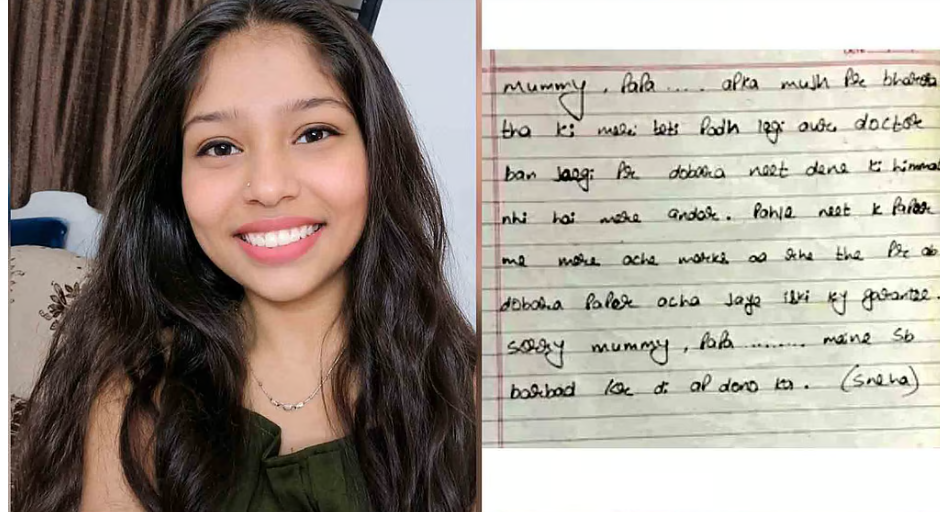 mummy, Papa .... apka mujh Par bharosa
tha ki meri beti Padh legi aur doctor
ban jaegi Par dobara neet dene ki himmat
nhi hai mere andar. Pahle neet k Paper
me mere ache marks aa rhe the Par ab
dobara Paper acha jaye iski ky garantee.
sorry mummy, Papa ........ maine sb
barbad kar di ap dono ka. (Sneha)